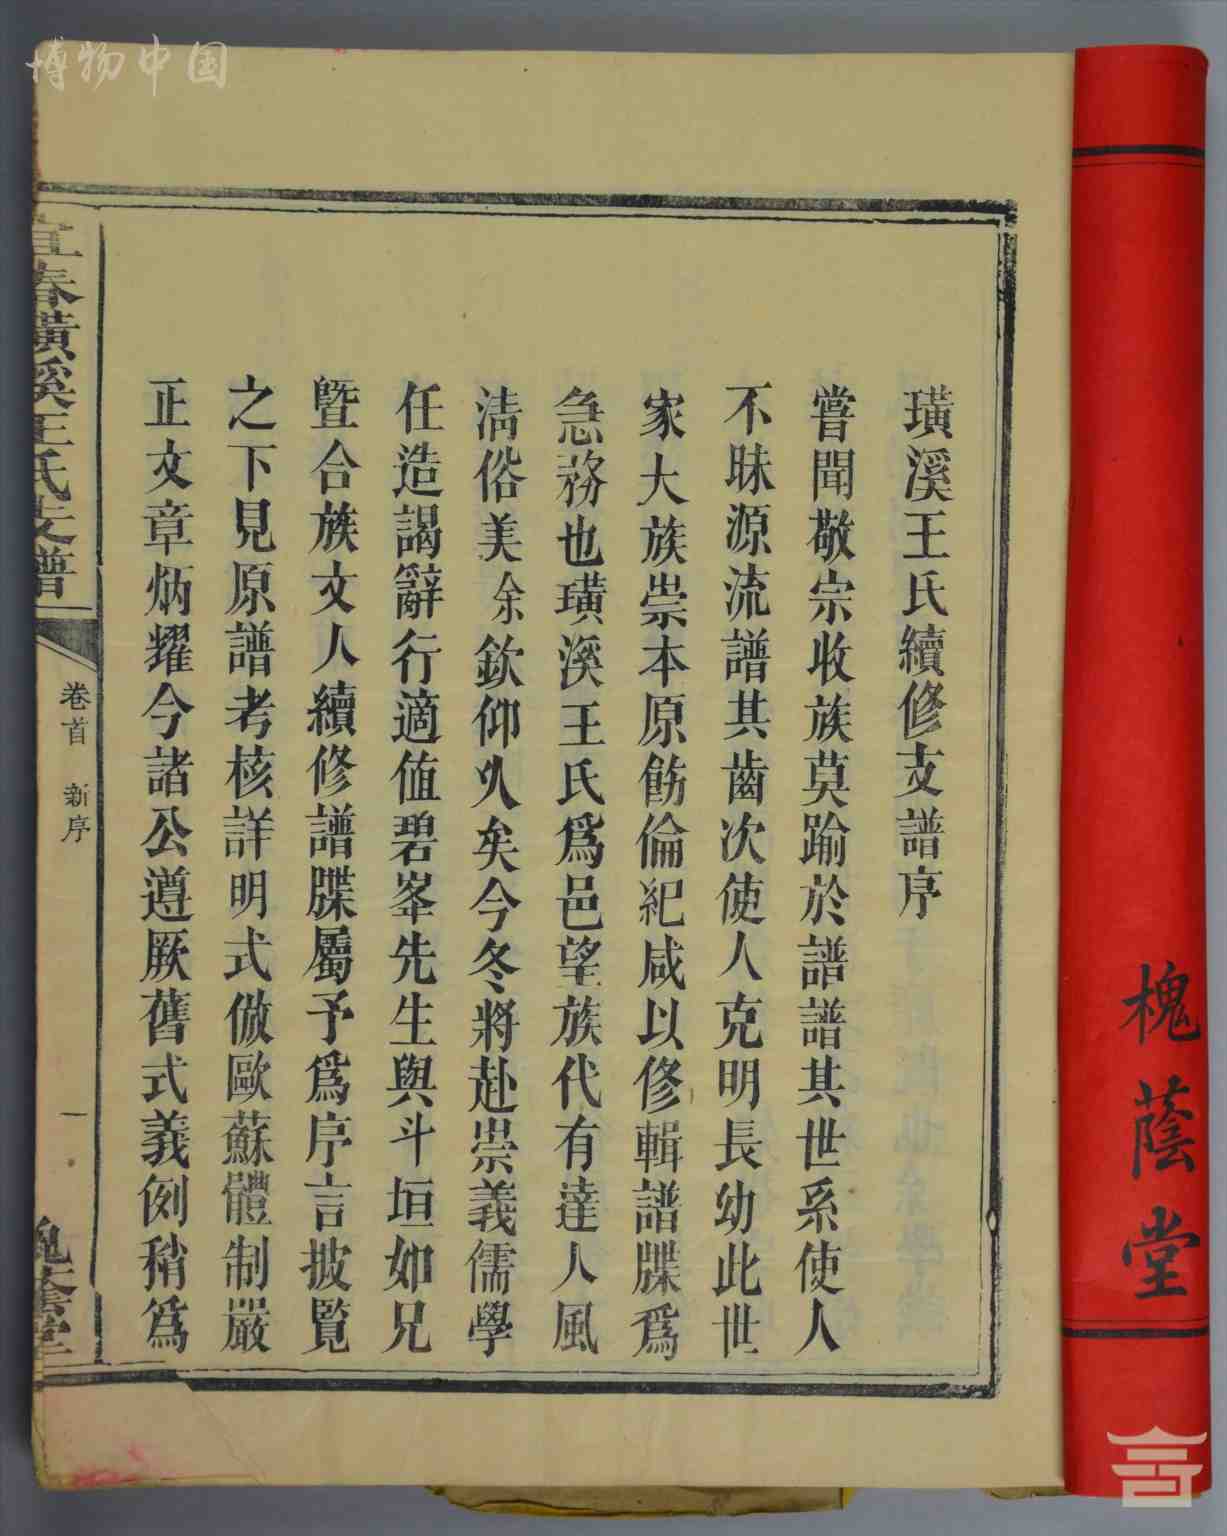 博物中国
璜溪王氏續修支譜序
嘗聞敬宗收族莫踰於譜譜其世系使人
不昧源流譜其齒次使人克明長幼此世
家大族崇本原飭倫紀咸以修輯譜牒爲
急務也璜溪王氏爲邑望族代有達人風
淸俗美余欽仰久矣今冬將赴崇義儒學
任造謁辭行適值碧峯先生與斗垣如兄
曁合族文人續修譜牒屬予爲序言披覧
之下見原譜考核詳明式倣歐蘇體制嚴
正文章炳耀今諸公遵厥舊式義例稍爲
宜春璜溪王氏支譜
卷首 新序
一
槐蔭堂
槐蔭堂